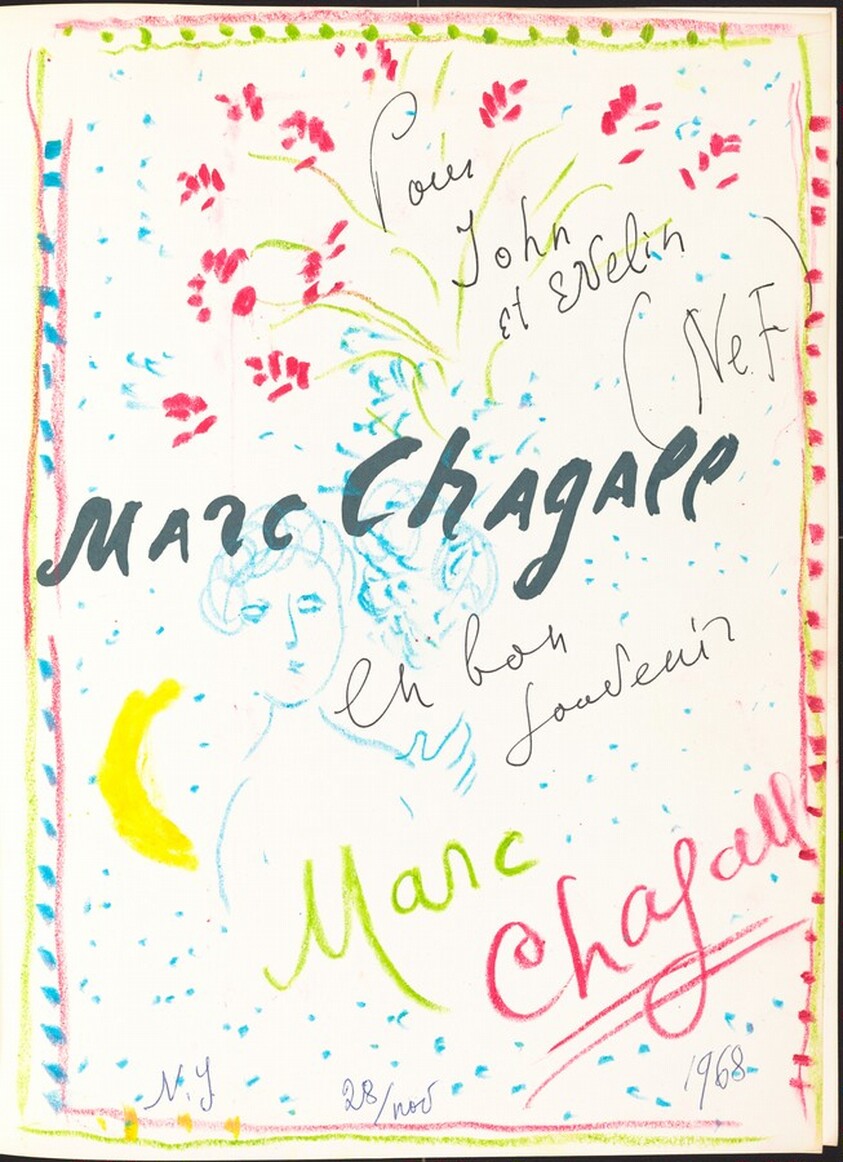 Pour
John
et EVelin
(NeF)
MArc ChAgAll
en bon
souvenir
Marc
Chagall
N.Y 28/nov 1968